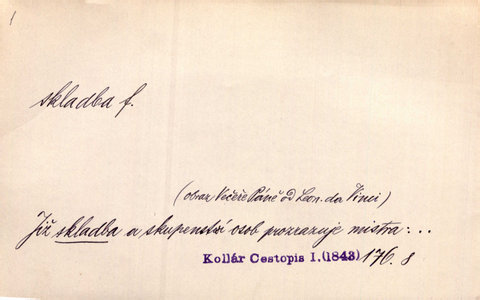 1
skladba f.
(obraz Večeře Páně od Leon. da Vinci)
Již skladba a skupenství osob prozrazuje mistra: ..
Kollár Cestopis I.(1843) 176. 8